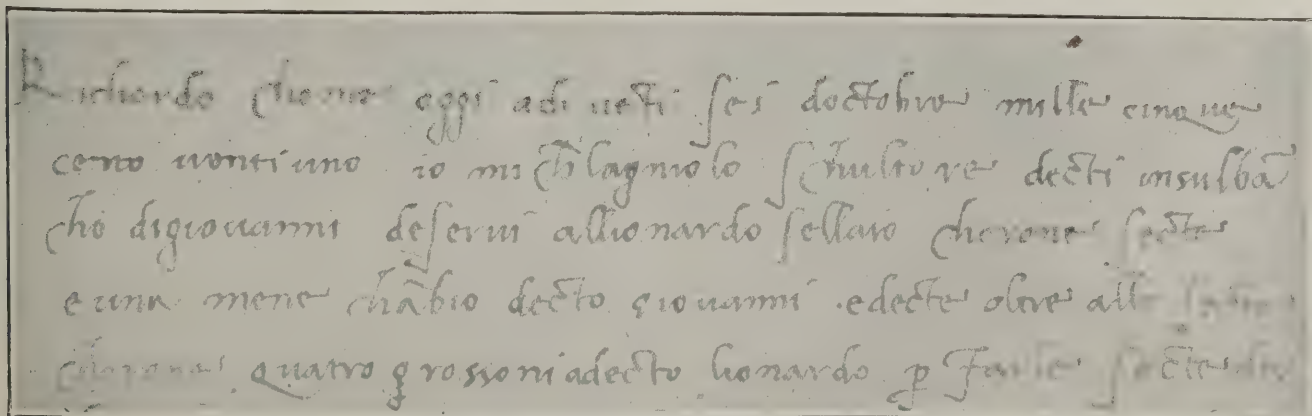 Richordo chome oggi adi ueti sei doctobre mille cinque
cento uentiuno io michelagniolo schultore decti insulbā
cho digiouanni deserui allionardo sellaio chorone secte
e una mene chābio decto giouanni edecte oltre alle
chorone quatro grossoni adecto lionardo p farle